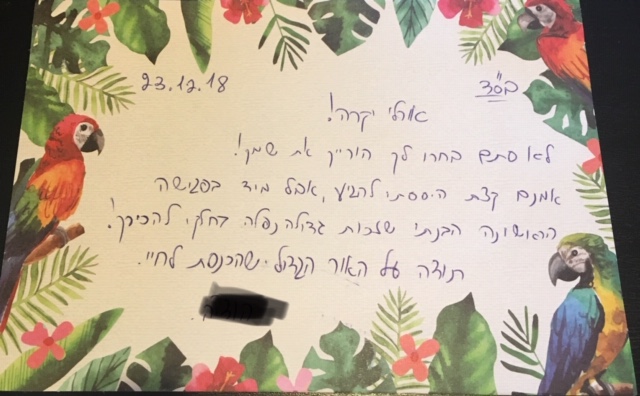 בס"ד
23.12.18
אורלי יקרה!
לא סתם בחרו לך הורייך את שמך!
אמנם קצת היססתי להגיע, אבל מיד בפגישה
הראשונה הבנתי שזכות גדולה נפלה בחלקי להכירך!
תודה על האור הגדול שהכנסת לחיי.